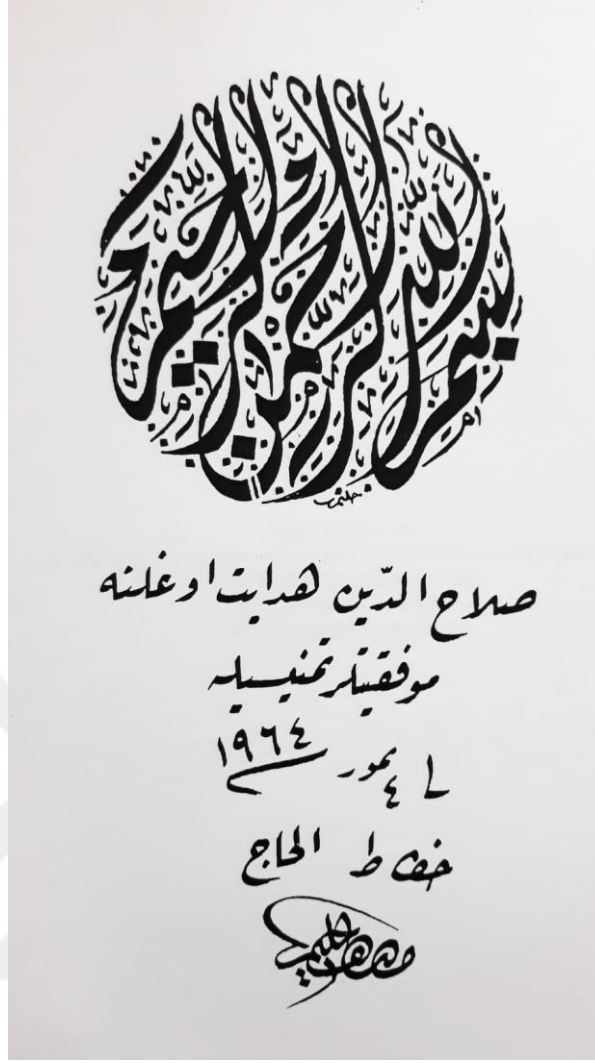 بسم الله الرحمن الرحيم
حليم
صلاح الدّين هدايت اوغلنه
موفقيتلر تمنيسيله
٤ تموز ١٩٦٤
خطاط الحاج